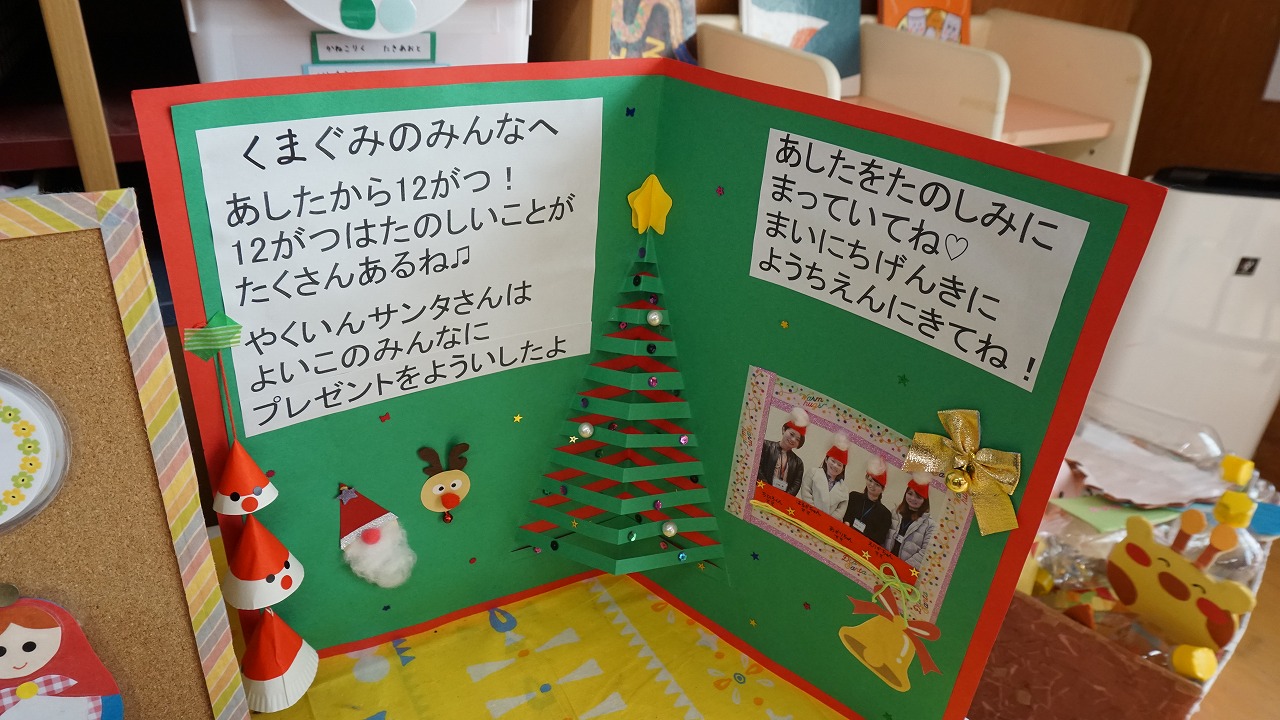 かねこりく たきあおと
くまぐみのみんなへ
あしたから12がつ！
12がつはたのしいことが
たくさんあるね♫
やくいんサンタさんは
よいこのみんなに
プレゼントをよういしたよ
あしたをたのしみに
まっていてね♡
まいにちげんきに
ようちえんにきてね！
warm
hugs